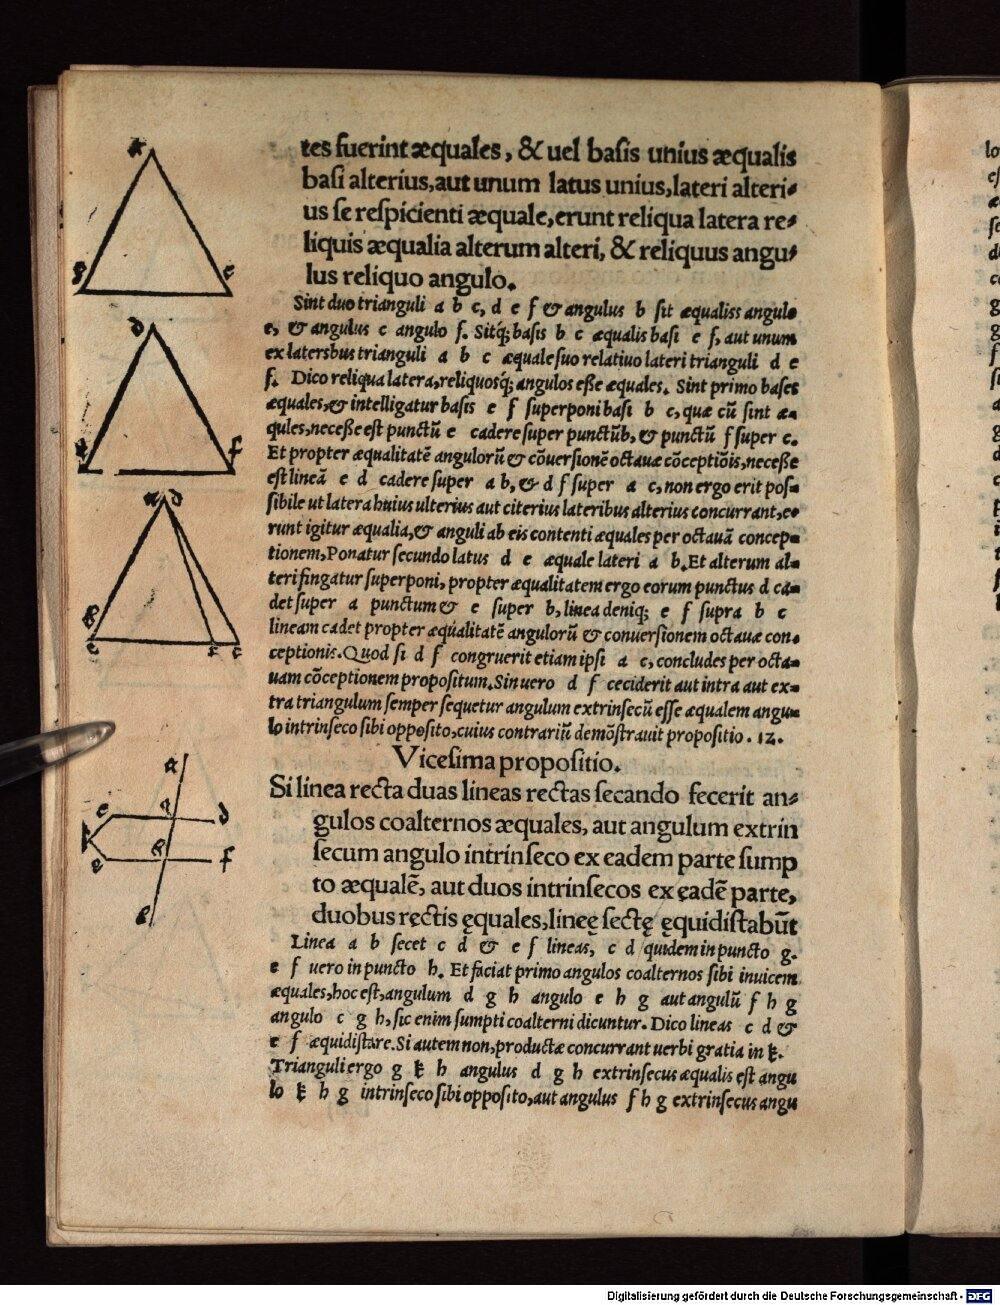 tes fuerint æquales, & uel basis unius æqualis
basi alterius, aut unum latus unius, lateri alteri-
us se respicienti æquale, erunt reliqua latera re-
liquis æqualia alterum alteri, & reliquus angu-
lus reliquo angulo.
Sint duo trianguli a b c, d e f & angulus b sit æqualiss angulo
e, & angulus c angulo f. Sitq; basis b c æqualis basi e f, aut unum
ex latersbus trianguli a b c æquale suo relatiuo lateri trianguli d e
f. Dico reliqua latera, reliquosq; angulos esse æquales. Sint primo bases
æquales, & intelligatur basis e f superponi basi b c, quæ cū sint æ-
qules, necesse est punctū e cadere super punctū b, & punctū f super c.
Et propter æqualitatē angulorū & cōuersionē octauæ cōceptiōis, necesse
est lineā e d cadere super a b, & d f super a c, non ergo erit pos-
sibile ut latera huius ulterius aut citerius lateribus alterius concurrant, e-
runt igitur æqualia, & anguli ab eis contenti æquales per octauā concep-
tionem, Ponatur secundo latus d e æquale lateri a b. Et alterum al-
teri fingatur superponi, propter æqualitatem ergo eorum punctus d ca-
det super a punctum & e super b, linea deniq; e f supra b c
lineam cadet propter æqualitatē angulorū & conuersionem octauæ con-
ceptionis. Quod si d f congruerit etiam ipsi a c, concludes per octa-
uam cōceptionem propositum. Sin uero d f ceciderit aut intra aut ex-
tra triangulum semper sequetur angulum extrinsecū esse æqualem angu-
lo intrinseco sibi opposito, cuius contrariū demōstrauit propositio . 12.
Vicesima propositio.
Si linea recta duas lineas rectas secando fecerit an-
gulos coalternos æquales, aut angulum extrin
secum angulo intrinseco ex eadem parte sump
to æqualē, aut duos intrinsecos ex eadē parte,
duobus rectis ęquales, lineę sectę ęquidistabūt
Linea a b secet c d & e f lineas, c d quidem in puncto g.
e f uero in puncto h. Et faciat primo angulos coalternos sibi inuicem
æquales, hoc est, angulum d g h angulo e h g aut angulū f h g
angulo c g h, sic enim sumpti coalterni dicuntur. Dico lineas c d &
e f æquidistare. Si autem non, productæ concurrant uerbi gratia in k.
Trianguli ergo g k h angulus d g h extrinsecus æqualis est angu
lo k h g intrinseco sibi opposito, aut angulus f h g extrinsecus angu
Digitalisierung gefördert durch die Deutsche Forschungsgemeinschaft - DFG